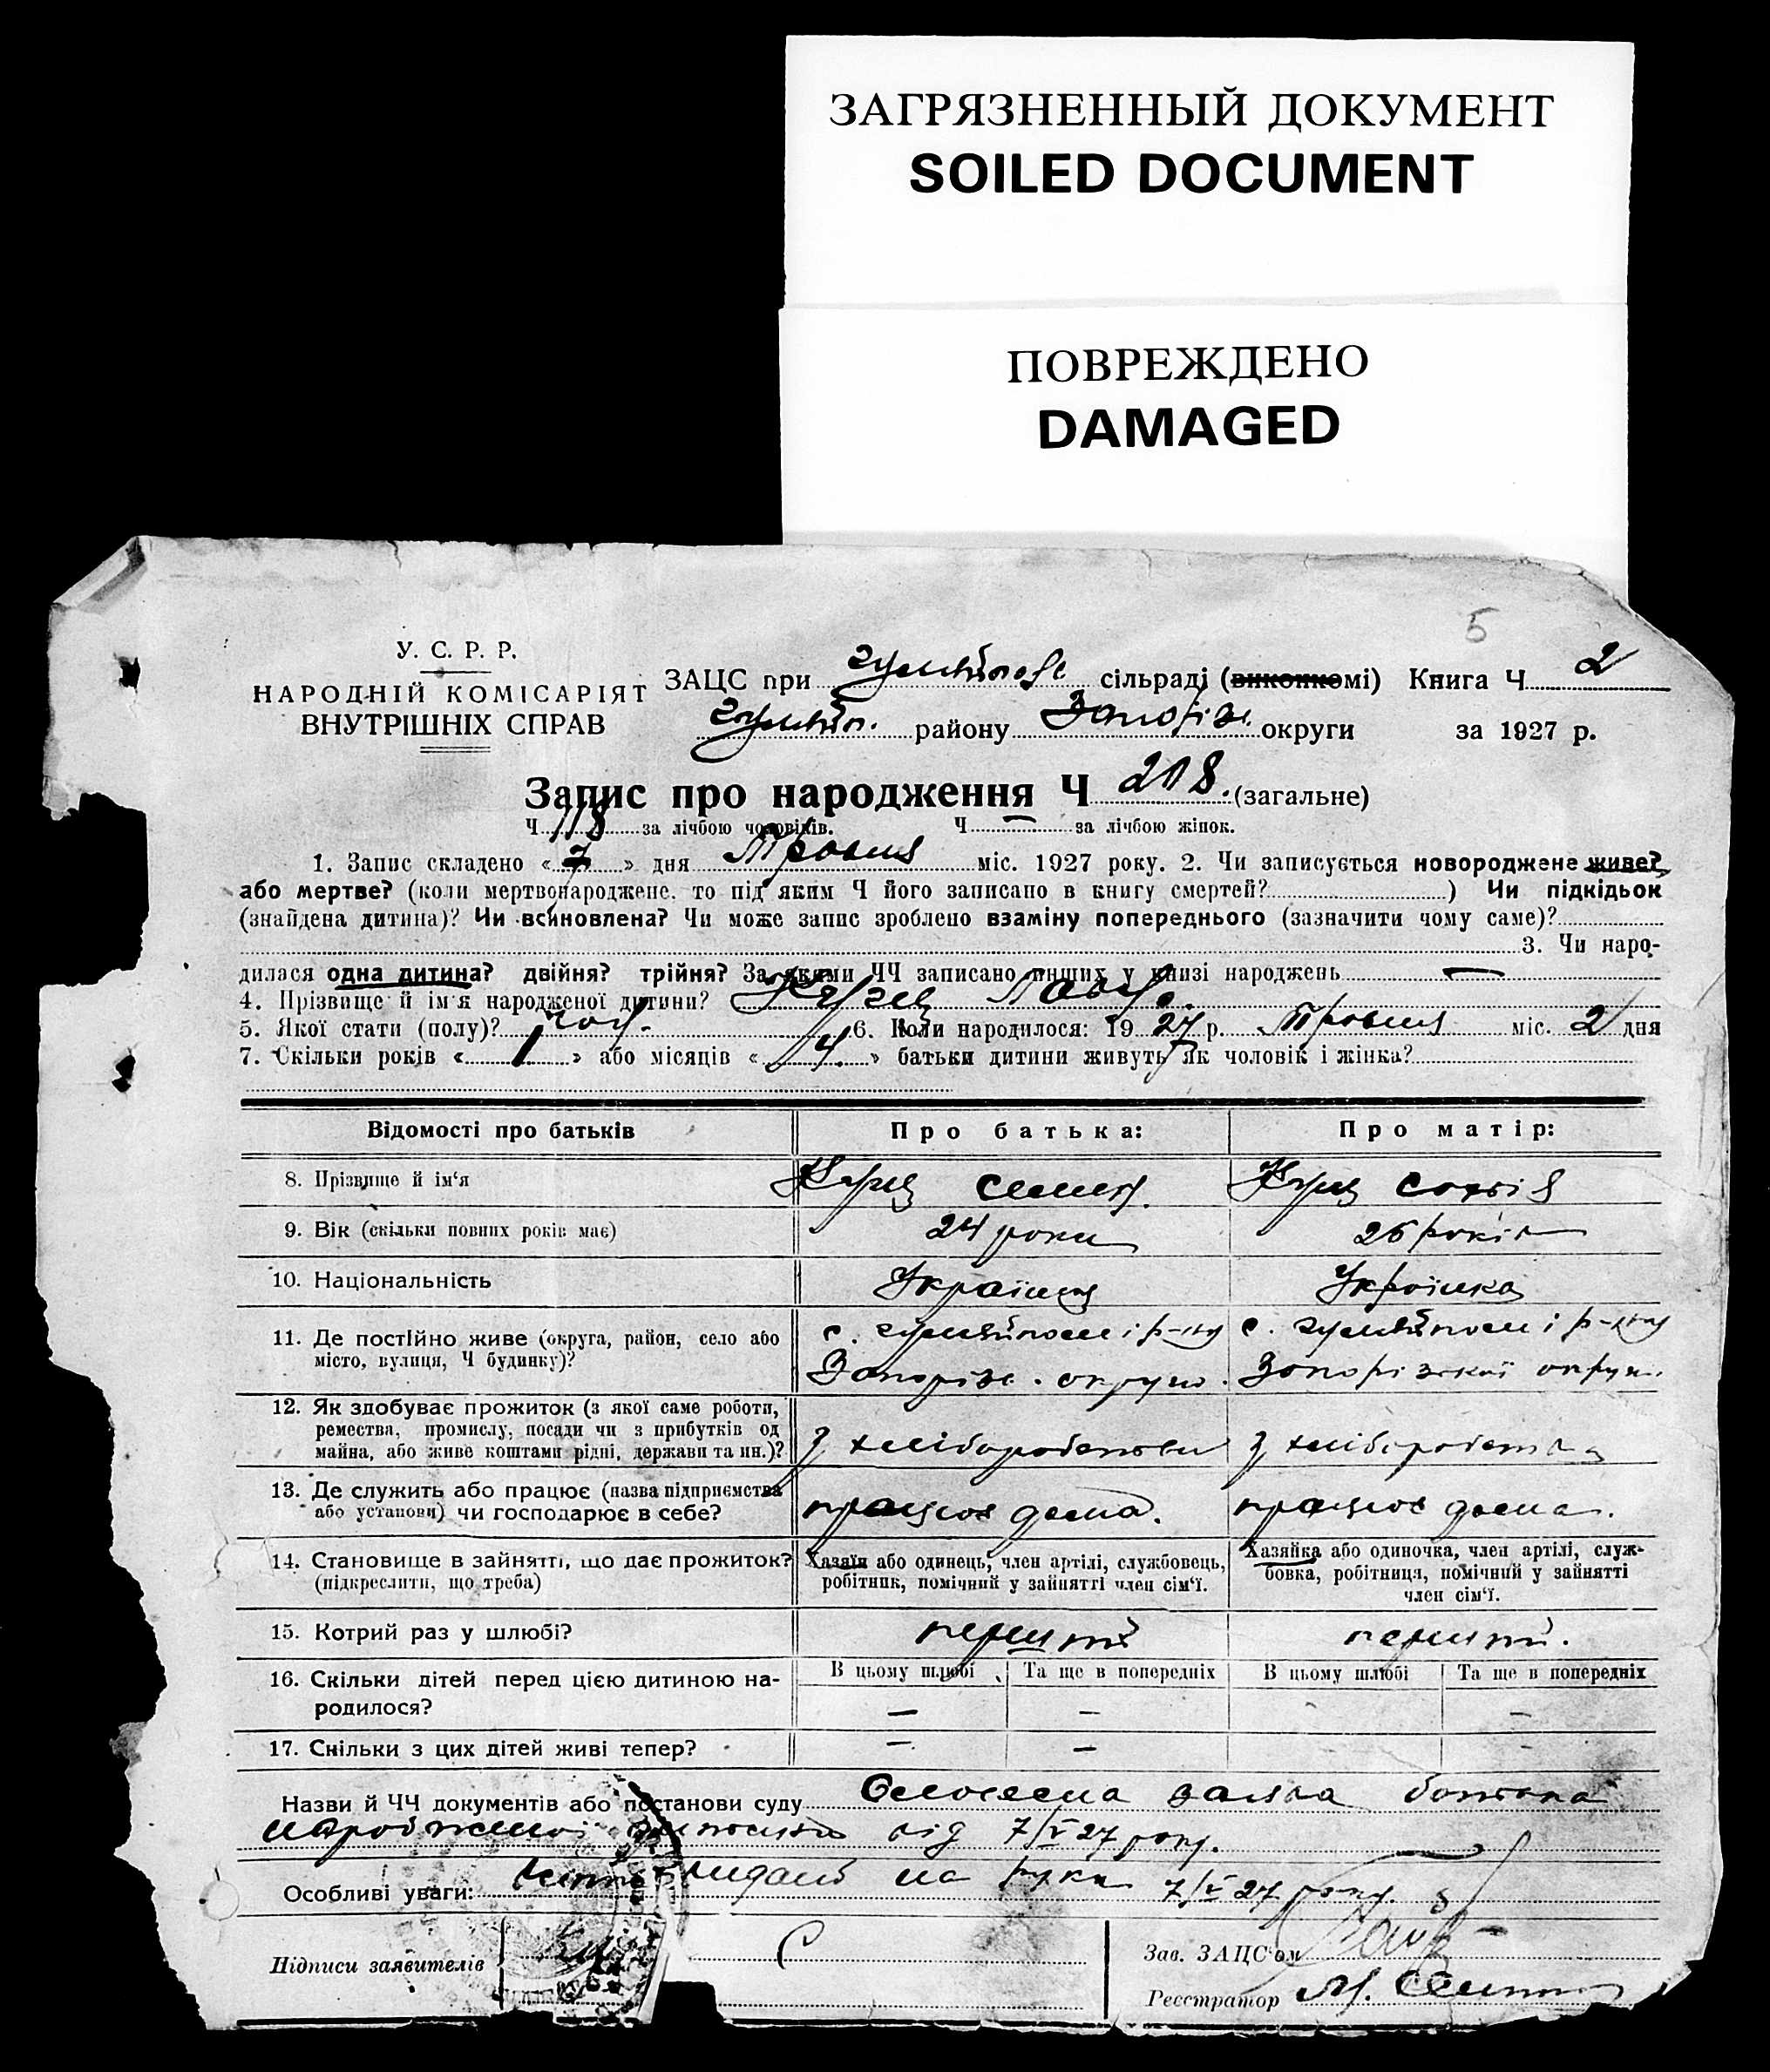 ЗАГРЯЗНЕННЫЙ ДОКУМЕНТ
SOILED DOCUMENT
ПОВРЕЖДЕНО
DAMAGED
5
У. С. Р. Р.
НАРОДНІЙ КОМІСАРІЯТ
ВНУТРІШНІХ СПРАВ
ЗАЦС при сільраді (виконкомі) Книга Ч 2
району Запоріз. округи за 1927 р.
Запис про народження Ч 218. (загальне)
Ч 118 за лічбою чоловіків. Ч — за лічбою жінок.
1. Запис складено «7» дня Травня міс. 1927 року. 2. Чи записується новороджене живе?
або мертве? (коли мертвонароджене, то під яким Ч його записано в книгу смертей? ) Чи підкідьок
(знайдена дитина)? Чи всиновлена? Чи може запис зроблено взаміну попереднього (зазначити чому саме)?
3. Чи наро-
дилася одна дитина? двійня? трійня? За якими ЧЧ записано инших у книзі народжень —
4. Прізвище й ім'я народженої дитини?
5. Якої стати (полу)? чол. 6. Коли народилося: 1927 р. Травня міс. 2 дня
7. Скільки років « 1 » або місяців « 4 » батьки дитини живуть як чоловік і жінка?
Відомості про батьків Про батька: Про матір:
8. Прізвище й ім'я Куць Семен. Куць Софія
9. Вік (скільки повних років має) 24 роки 26 років
10. Національність Українець Українка
11. Де постійно живе (округа, район, село або
місто, вулиця, Ч будинку)?
с. р-ну с. р-ну
Запоріз. округи. Запорізької округи.
12. Як здобуває прожиток (з якої саме роботи,
ремества, промислу, посади чи з прибутків од
майна, або живе коштами рідні, держави та ин.)?
З хліборобства З хліборобства
13. Де служить або працює (назва підприємства
або установи) чи господарює в себе?
працює дома. працює дома.
14. Становище в зайнятті, що дає прожиток?
(підкреслити, що треба)
Хазяїн або одинець, член артілі, службовець,
робітник, помічний у зайнятті член сім'ї.
Хазяйка або одиночка, член артілі, служ-
бовка, робітниця, помічний у зайнятті
член сім'ї.
15. Котрий раз у шлюбі? перший перший.
16. Скільки дітей перед цією дитиною на-
родилося?
В цьому шлюбі Та ще в попередніх В цьому шлюбі Та ще в попередніх
— — —
17. Скільки з цих дітей живі тепер? — —
Назви й ЧЧ документів або постанови суду заява батька
від 7/V 27 року.
Особливі уваги: на руки 7/V 27 року.
Підписи заявителів
Зав. ЗАЦС'ом
Реєстратор М.